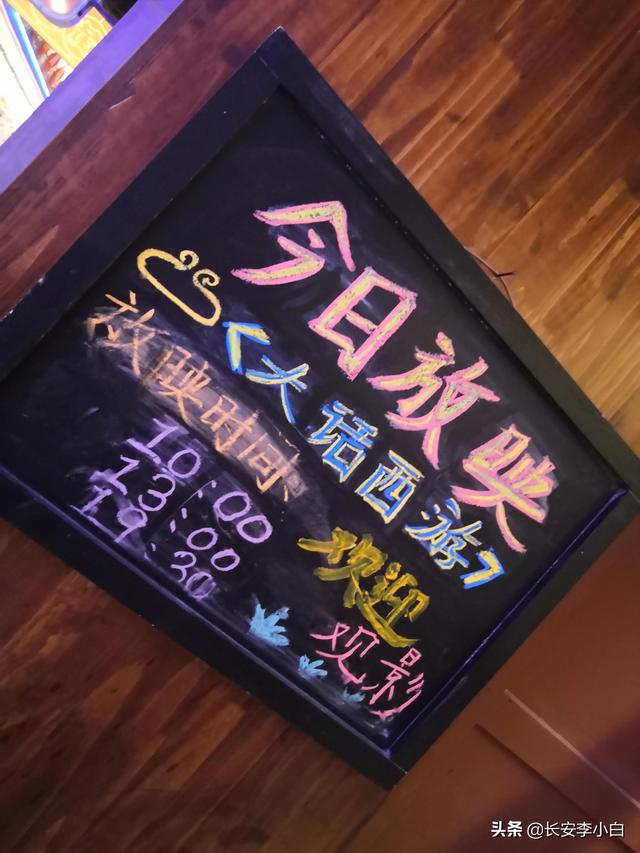 今日放映
《大话西游》
放映时间
10:00
13:00
19:30
欢迎
观影
头条 @长安李小白